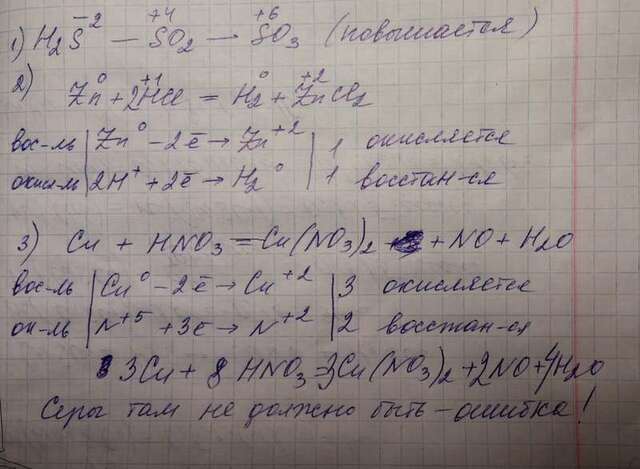 1) H₂S⁻² — SO₂⁺⁴ → SO₃⁺⁶ (повышается)
2) Zn⁰ + 2H⁺¹Cl = H₂⁰ + Zn⁺²Cl₂
вос-ль | Zn⁰ - 2ē → Zn⁺² | 1 окисляется
окис-ль | 2H⁺ + 2ē → H₂⁰ | 1 восстан-ся
3) Cu + HNO₃ = Cu(NO₃)₂ + NO + H₂O
вос-ль | Cu⁰ - 2ē → Cu⁺² | 3 окисляется
ок-ль | N⁺⁵ + 3ē → N⁺² | 2 восстан-ся
3Cu + 8HNO₃ = 3Cu(NO₃)₂ + 2NO + 4H₂O
Серы там не должно быть - ошибка!